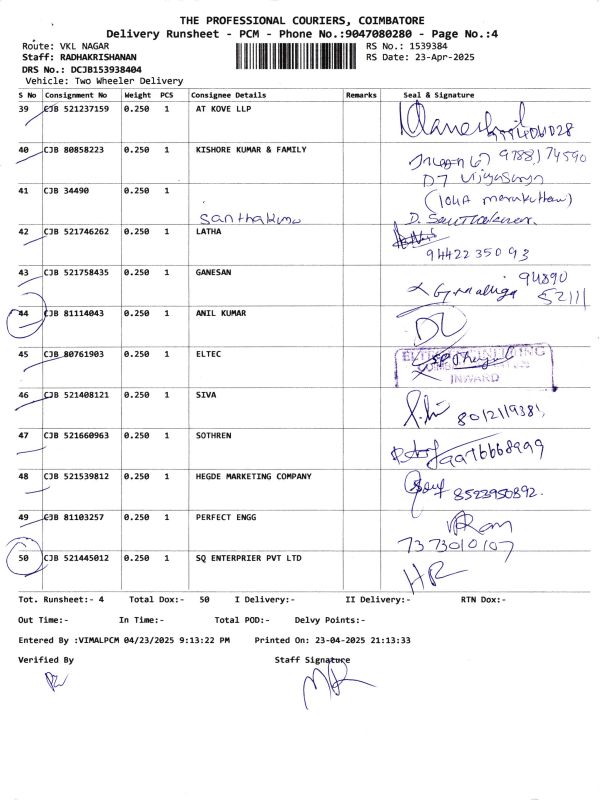 THE PROFESSIONAL COURIERS, COIMBATORE
Delivery Runsheet - PCM - Phone No.:9047080280 - Page No.:4
Route: VKL NAGAR RS No.: 1539384
Staff: RADHAKRISHANAN RS Date: 23-Apr-2025
DRS No.: DCJB153938404
Vehicle: Two Wheeler Delivery
S No Consignment No Weight PCS Consignee Details Remarks Seal & Signature
39 CJB 521237159 0.250 1 AT KOVE LLP
40 CJB 80858223 0.250 1 KISHORE KUMAR & FAMILY 9788174590
D7
41 CJB 34490 0.250 1
Santhakumar
42 CJB 521746262 0.250 1 LATHA
94422 35093
43 CJB 521758435 0.250 1 GANESAN 94890
52111
44 CJB 81114043 0.250 1 ANIL KUMAR
45 CJB 80761903 0.250 1 ELTEC
INWARD
46 CJB 521408121 0.250 1 SIVA 8012119381
47 CJB 521660963 0.250 1 SOTHREN
48 CJB 521539812 0.250 1 HEGDE MARKETING COMPANY 8523950892.
49 CJB 81103257 0.250 1 PERFECT ENGG
7373010107
50 CJB 521445012 0.250 1 SQ ENTERPRIER PVT LTD
HR
Tot. Runsheet:- 4 Total Dox:- 50 I Delivery:- II Delivery:- RTN Dox:-
Out Time:- In Time:- Total POD:- Delvy Points:-
Entered By :VIMALPCM 04/23/2025 9:13:22 PM Printed On: 23-04-2025 21:13:33
Verified By Staff Signature